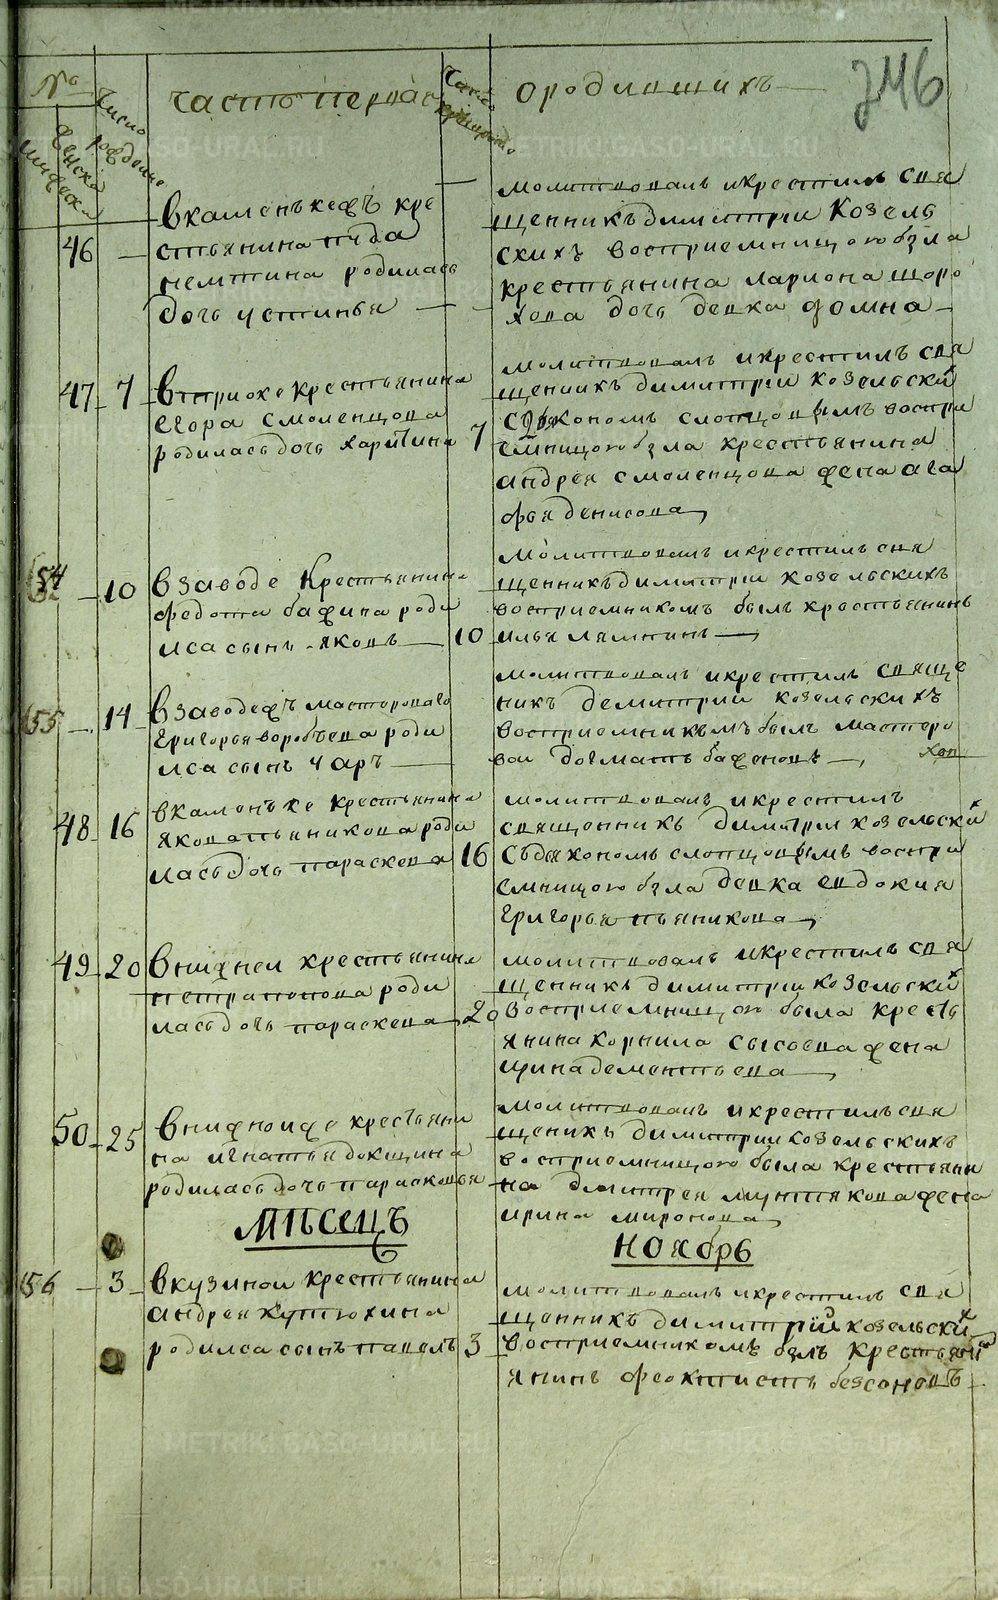 №
мужеска
женска
Число рождение
часть первая
Число крещение
о родившихъ
246
46
вкаменъкежъ кре
стьянина
немтина родилась
дочь устинья
молитвовалъ и крестилъ свя
щенникъ димитрiи Козель
скихъ восприемницою была
крестьянина лариона шоро
хова дочь девка фомна
47 7
втриоке крестьянина
егора смоленцова
родилась дочь харитина
7
молитвовалъ и крестилъ свя
щенникъ димитрiи козельски
х
сдьякономъ слопцовымъ воспри
емницою была крестьянина
андрея смоленцова жена ага
фья денисова
54 10
взаводе крестьянина
федота бажина роди
лса сынъ яковъ
10
молитвовалъ и крестилъ свя
щенникъ димитрiи козельскихъ
восприемникомъ былъ крестьянинъ
илья лямпинъ
55 14
взаводежъ мастероваго
григорья воробьева роди
лса сынъ уаръ
молитвовалъ и крестилъ свяще
никъ демитрiи козельскихъ
восприемникъмъ былъ мастеро
вои догматъ баженовъ
48 16
вкаменъке крестьянина
якова пьяникова роди
лась дочь параскева
16
молитвовалъ и крестилъ
священникъ димитрiи козельски
х
съдьякономъ слопцовымъ воспри
емницою была девка евдокия
григорья пьяникова
49 20
внижнеи крестьянина
петра попова роди
лась дочь параскева
20
молитвовалъ и крестилъ свя
щенникъ димитрiи козельски
х
восприемницою была кресть
янина корнила сысоева жена
ирина дементьева
50 25
внижноиже крестьяни
на игнатья докшина
родилась дочь парасковья
молитвовалъ и крестилъ свя
щеникъ димитрiи козельскихъ
восприемницою была крестьяни
на дмитрея мунтякова жена
ирина миронова
мѣсецъ
ноябрь
56 3
вкузинои крестьянина
андрея кутюхина
родилса сынъ павелъ
3
молитвовалъ и крестилъ свя
щенникъ димитрiи козельски
х
восприемникомъ былъ крестья
янинъ феоктистъ безсоновъ
METRIKI.GASO-URAL.RU
METRIKI.GASO-URAL.RU